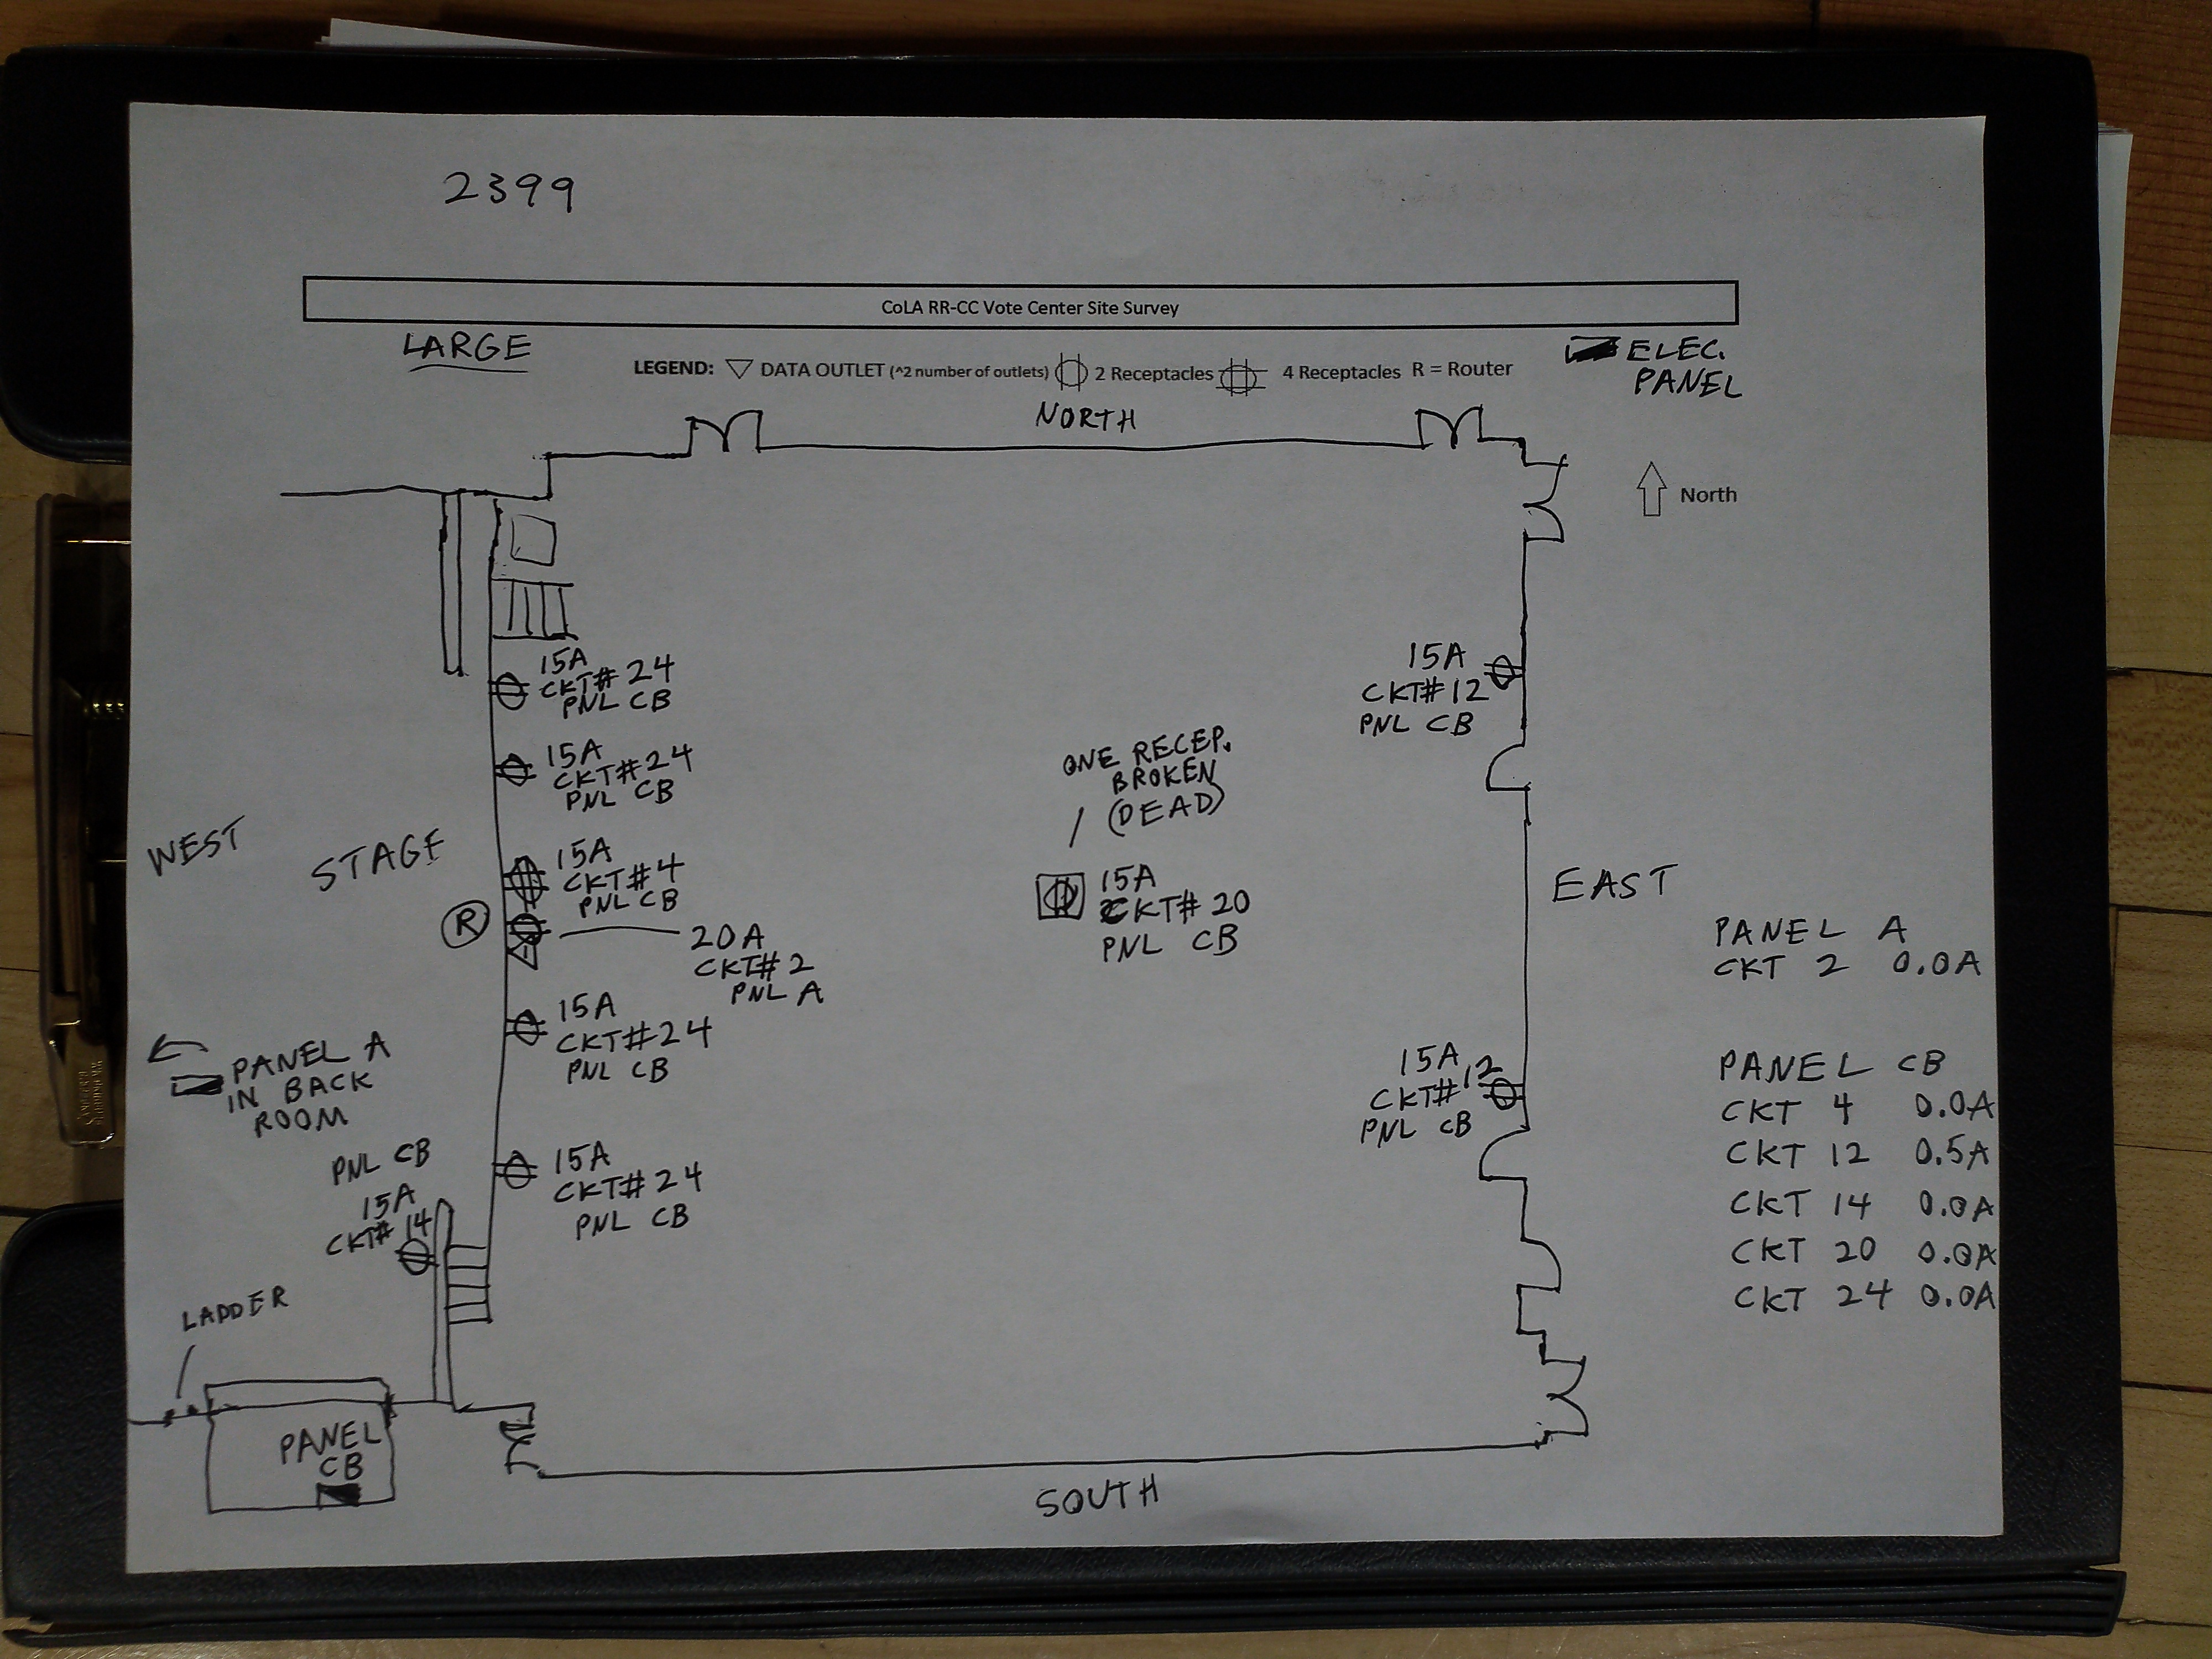 2399
CoLA RR-CC Vote Center Site Survey
LARGE
LEGEND: ▽ DATA OUTLET (^2 number of outlets) 2 Receptacles 4 Receptacles R = Router
ELEC.
PANEL
NORTH
North
15A
CKT# 24
PNL CB
15A
CKT# 24
PNL CB
15A
CKT# 12
PNL CB
ONE RECEP.
BROKEN
(DEAD)
WEST
STAGE
15A
CKT# 4
PNL CB
R
20A
CKT# 2
PNL A
15A
CKT# 20
PNL CB
EAST
PANEL A
CKT 2 0.0A
15A
CKT# 24
PNL CB
PANEL A
IN BACK
ROOM
15A
CKT# 12
PNL CB
PANEL CB
CKT 4 0.0A
CKT 12 0.5A
CKT 14 0.0A
CKT 20 0.0A
CKT 24 0.0A
15A
CKT# 24
PNL CB
PNL CB
15A
CKT# 14
LADDER
PANEL
CB
SOUTH